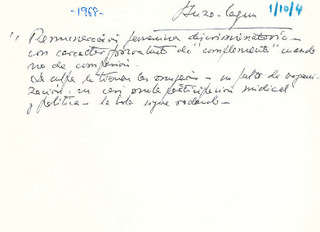 -1968-
1/10/4
Remuneración femenina discriminatoria -
con caracter de "complemento" cuando
no de compasión.
La culpa la tienen las mujeres - su falta de organi-
zación. su casi nula participación sindical
y política - la bola sigue rodando -